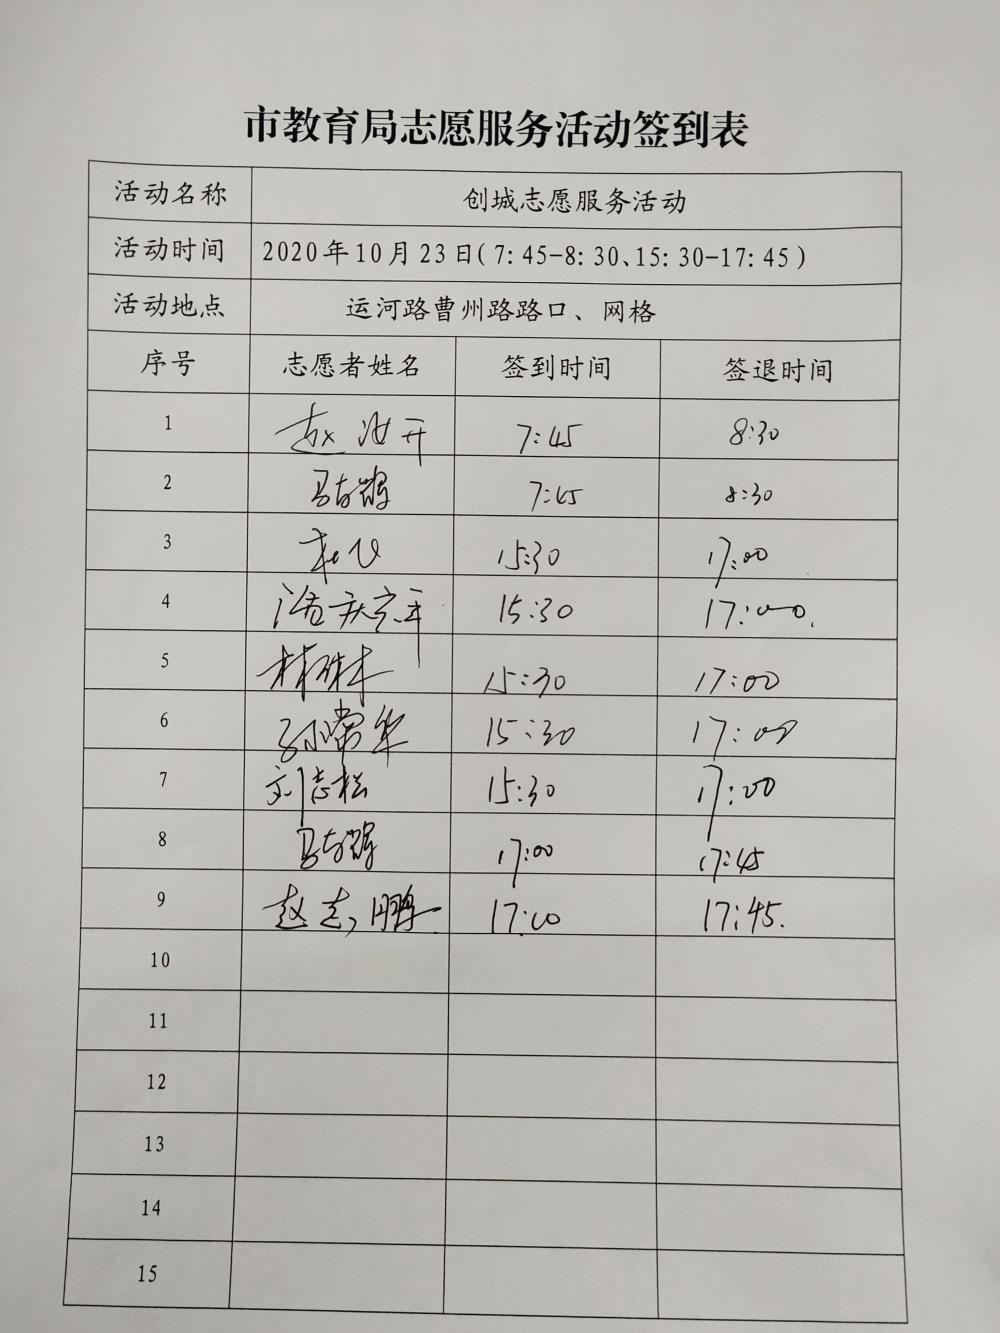 市教育局志愿服务活动签到表
活动名称 创城志愿服务活动
活动时间 2020年10月23日(7:45-8:30、15:30-17:45)
活动地点 运河路曹州路路口、网格
序号 志愿者姓名 签到时间 签退时间
1 赵汝开 7:45 8:30
2 7:45 8:30
3 15:30 17:00
4 15:30 17:00.
5 15:30 17:00
6 孙常华 15:30 17:00
7 刘志松 15:30 17:00
8 17:00 17:45
9 赵志鹏 17:00 17:45.
10
11
12
13
14
15